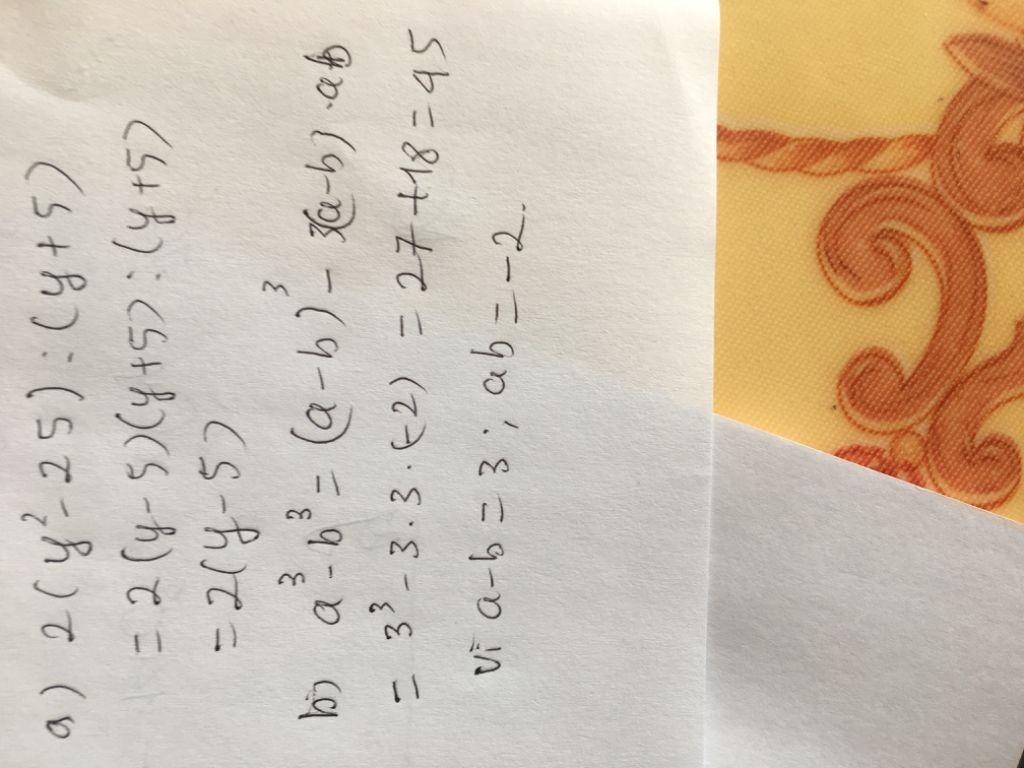 a) 2(y²-25):(y+5)
= 2(y-5)(y+5):(y+5)
= 2(y-5)
b) a³-b³=(a-b)³-3(a-b).ab
= 3³-3.3.(-2) = 27+18=45
Vì a-b=3; ab=-2.